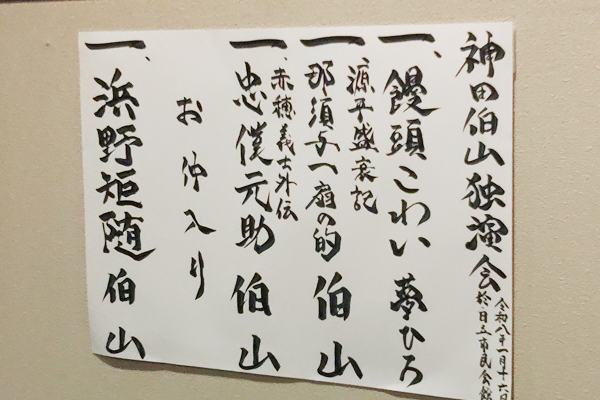 神田伯山独演会
令和八年一月十六日
於・日立市民会館
一、饅頭こわい 夢ひろ
源平盛衰記
一、那須与一扇の的 伯山
赤穂義士外伝
一、忠僕元助 伯山
お仲入り
一、浜野矩随 伯山